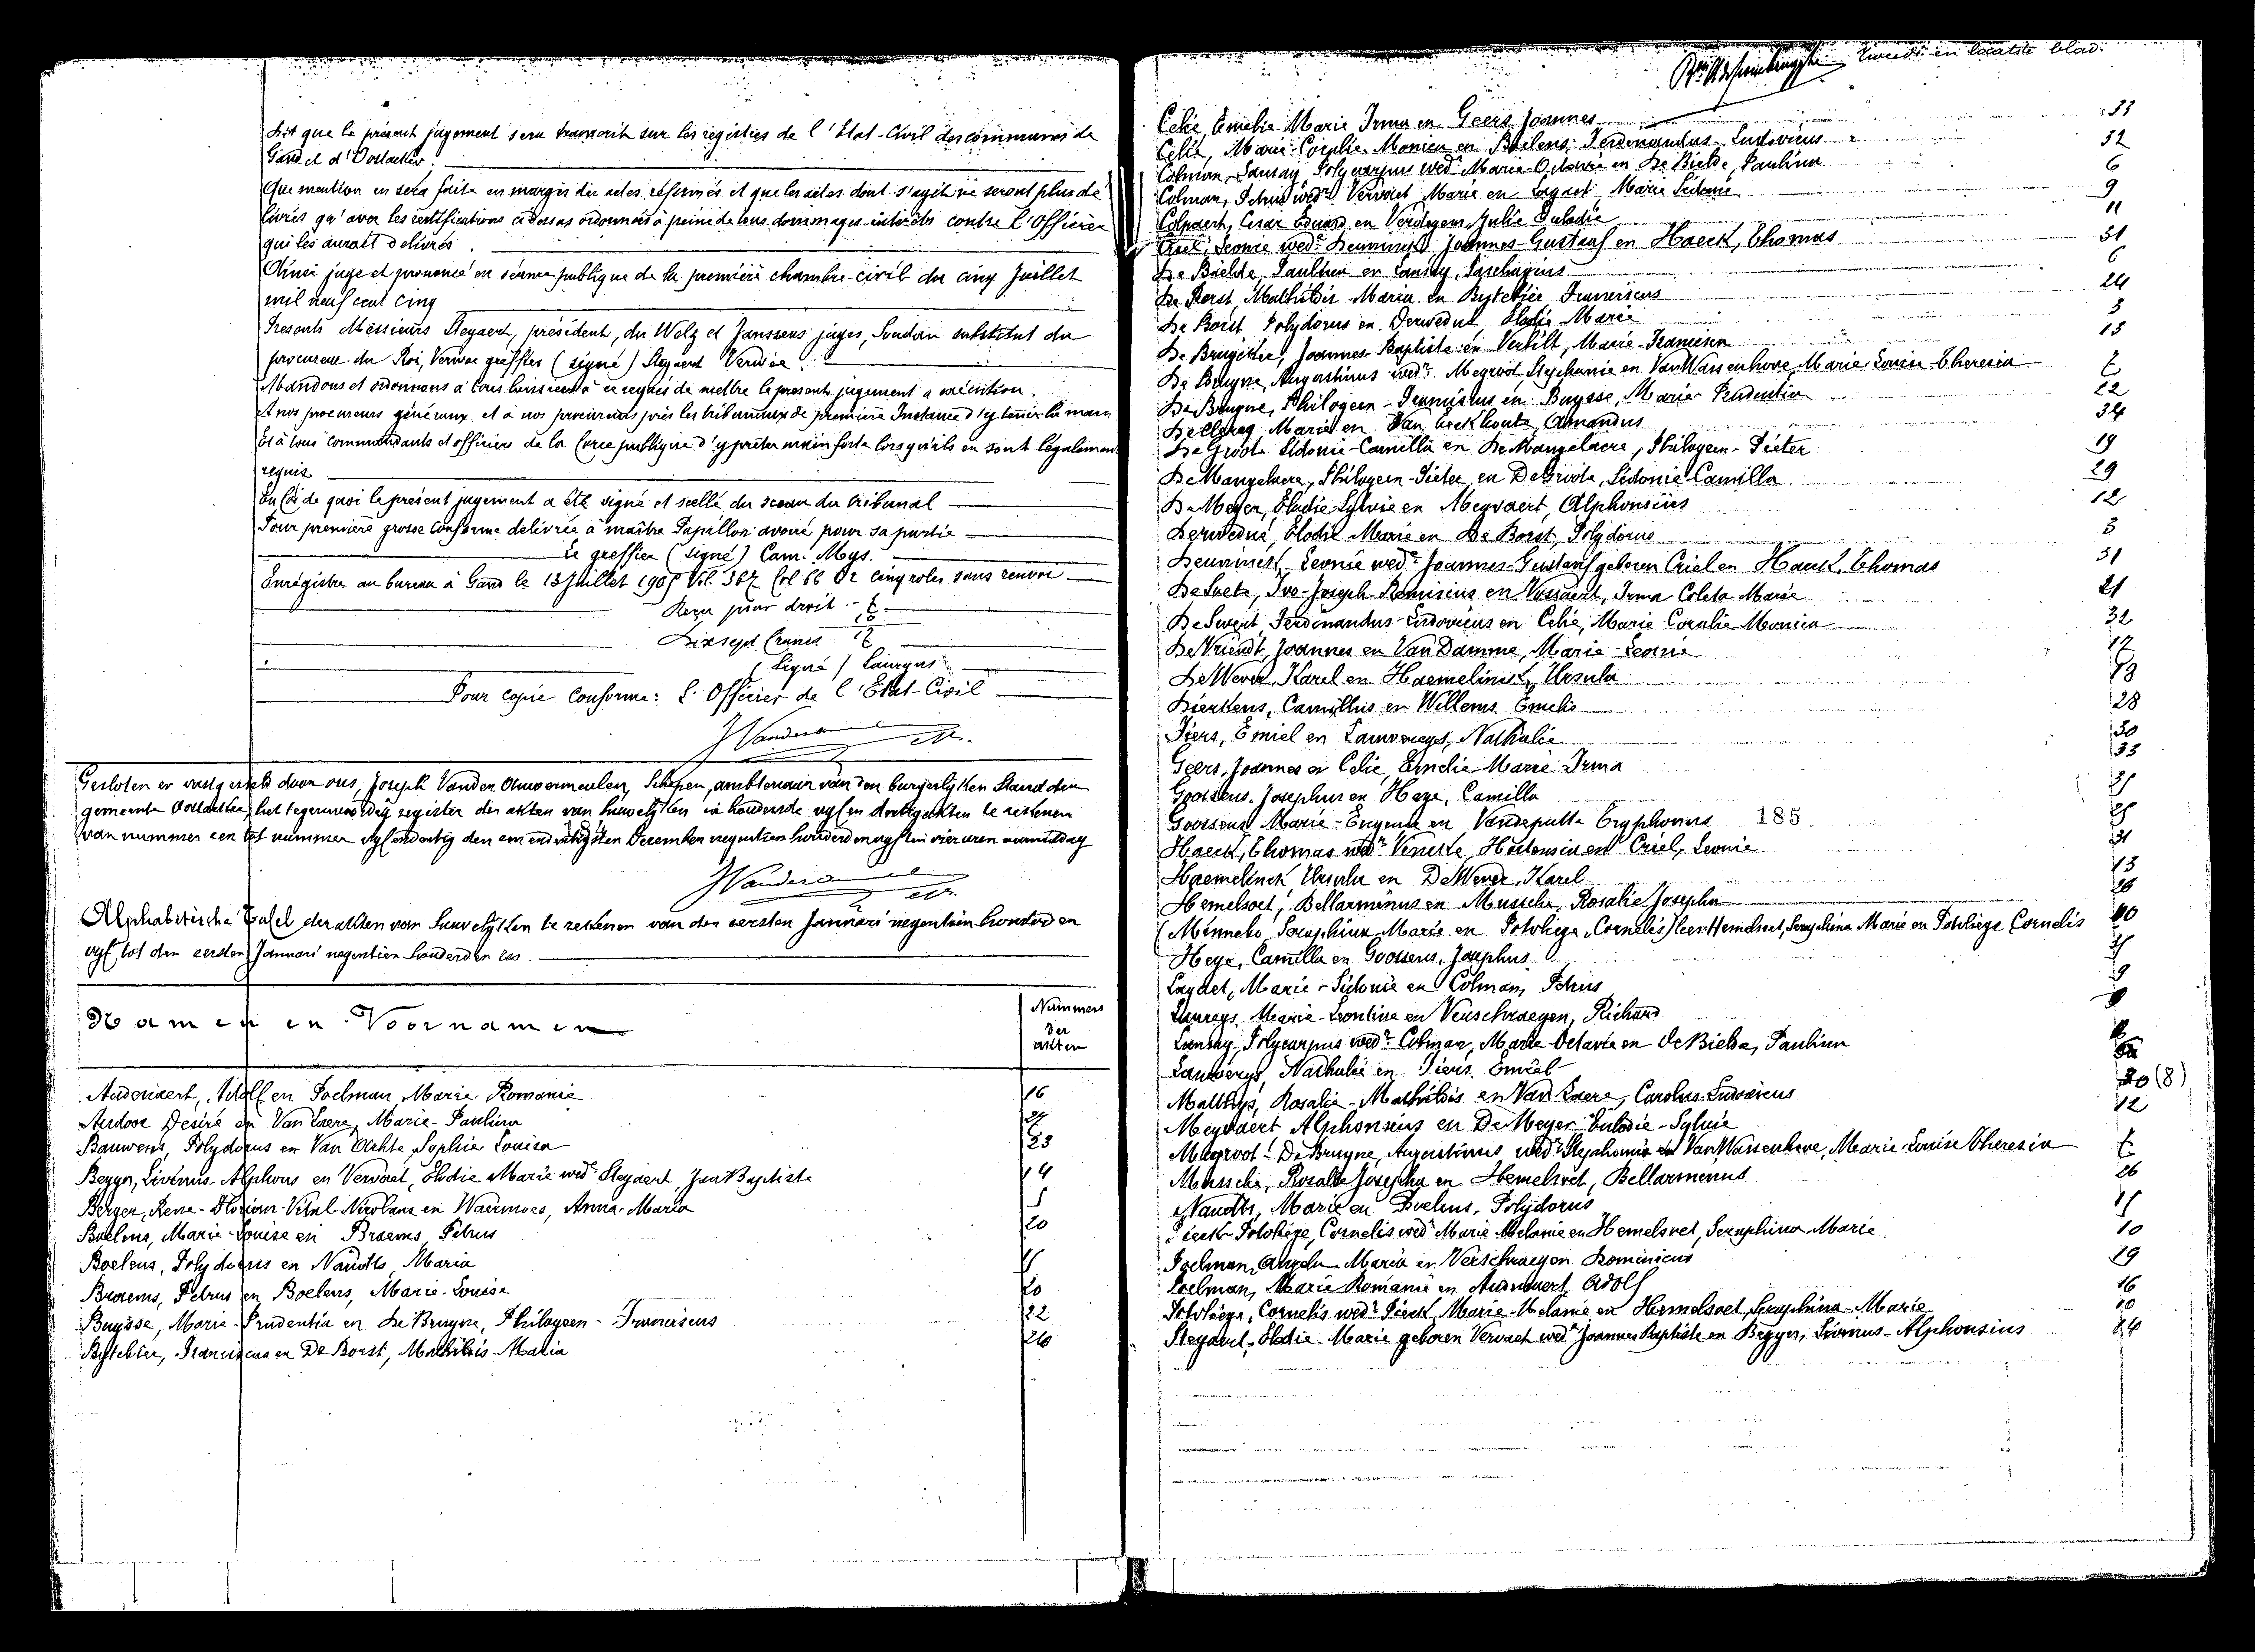 Dit que le présent jugement sera transcrit sur les registres de l'Etat-Civil des communes de
Gand et d'Oostacker.
Que mention en sera faite en marge des actes réformés et que les actes dont s'agit ne seront plus dé
livrés qu'avec les rectifications ci-dessus ordonnées à peine de tous dommages-intérêts contre l'Officier
qui les aurait délivrés.
Ainsi jugé et prononcé en séance publique de la première chambre civil du cinq Juillet
mil neuf cent cinq
Présents Messieurs Steyaert, président, de Welz et Janssens juges, Soudan substitut du
procureur du Roi, Verwée greffier (signé) Steyaert Verwée.
Mandons et ordonnons à tous huissiers à ce requis de mettre le présent jugement a exécution.
Et nos procureurs généraux et à nos procureurs près les tribunaux de première Instance d'y tenir la main
Et à tous commandants et officiers de la force publique d'y prêter main forte lorsqu'ils en sont légalement
requis
En foi de quoi le présent jugement a été signé et scellé du sceau du tribunal
Pour première grosse conforme délivrée à maître Papillon avoué pour sa partie
Le greffier (signé) Cam. Mys.
Enrégistré au bureau à Gand le 13 Juillet 1905 Vol. 367 fol 66 cinq roles sans renvoi
Reçu pour droit
Dixsept francs
(signé)
Pour copie conforme: L'Officier de l'Etat-Civil
Gesloten en vastgesteld door ons, Joseph Vander Auwermeulen, Schepen, ambtenaar van den burgerlijken Stand der
gemeente Oostacker, het tegenwoordig register der akten van huwelijken inhoudende vijf en dertig akten te rekenen
van nummer een tot nummer vijfendertig den een en dertigsten December negentien honderd en vijf ten vier uren namiddag
Alphabetische Tafel der akten van huwelijken te rekenen van den eersten Januari negentien honderd en
vijf tot den eersten Januari negentien honderd en zes.
Namen en Voornamen
Nummers
der
akten
Audenaert, Adolf en Poelman, Marie Romanie 16
Audoor Desiré en Van Laere, Marie-Paulina
Bauwens, Polydorus en Van Ackte, Sophie Louisa 23
Begyn, Livinus-Alphons en Vervaet, Elodie Marie wed. Steyaert, Jan Baptiste 14
Berger, Rene-Florian-Vital-Nicolaus en Waermoes, Anna-Maria 5
Boelens, Marie-Louise en Braems, Petrus 20
Boelens, Polydorus en Naudts, Maria
Braems, Petrus en Boelens, Marie-Louise 20
Buysse, Marie-Prudentia en De Bruyne, Philogeen-Franciscus 22
Bytebier, Franciscus en De Borst, Mathildis Maria 24
tweede en laatste blad.
Celie, Emelie Marie Irma en Geers Joannes 33
Celie, Marie-Coralie-Monica en Boelens, Ferdinandus-Ludovicus 32
Colman, Lansay, Polycarpus wed. Marie-Octavie en De Bielde, Paulina 6
Colman, Petrus wed. Vervaet, Marie en Laquet, Marie Sidonie 9
Colpaert, Cesar Eduard en Verdegem, Julie Eulalie 11
Criel, Leonie wed. Deuninck Joannes-Gustaaf en Haeck, Thomas 31
De Bielde, Paulina en Lansay, 6
De Borst, Mathildis Maria en Bytebier, Franciscus 24
De Borst, Polydorus en Derwedué Elodie Marie 3
De Bruycker, Joannes-Baptiste en Verbilt, Marie-Francisca 13
De Bruyne, Augustinus wed. Megroot, Stephanie en Van Wassenhove, Marie Louise Theresia 7
De Bruyne, Philogeen-Franciscus en Buysse, Marie-Prudentia 22
De Clercq Marie en Van Eeckhoute, Amandus 34
De Groote Sidonie-Camilla en De Mangelaere, Philogeen-Pieter 19
De Mangelaere, Philogeen-Pieter en De Groote, Sidonie Camilla 29
De Meyer, Elodie Sylvie en Meyvaert, Alphonsius 12
Derwedué, Elodie Marie en De Borst, Polydorus 3
Deuninck, Leonie wed. Joannes-Gustaaf geboren Criel en Haeck, Thomas 31
De Soete, Ivo-Joseph-Remisius en Vossaert, Irma Coleta Marie 21
De Swert, Ferdinandus-Ludovicus en Celie, Marie Coralie Monica 32
De Vriendt, Joannes en Van Damme, Marie-Leonie 17
De Wever, Karel en Haemelinck, Ursula 13
Dierkens, Camillus en Willems, Emelie 28
Fiers, Emiel en Lauwereys, Nathalie 30
Geers, Joannes en Celie, Emelie-Marie Irma 33
Goossens, Josephus en Heye, Camilla
Goossens, Marie-Eugenie en Vandeputte Tryphonus 185
Haeck, Thomas wed. Hortensia en Criel, Leonie 31
Haemelinck Ursula en De Wever, Karel 13
Hemelsoet, Bellarminus en Mussche, Rosalie Josepha 26
(Minnebo, Seraphina Marie en Potvliege, Cornelis) lees: Hemelsoet, Seraphina Marie en Potvliege Cornelis 10
Heye, Camilla en Goossens, Josephus
Laquet, Marie-Sidonie en Colman, Petrus 9
Laureys, Marie-Leontine en Verschraegen, Richard
Lansay, Polycarpus wed. Colman, Marie-Octavie en De Bielde, Paulina
Lauwereys, Nathalie en Fiers, Emiel
Matthys, Rosalie-Mathildis en Van Laere, Carolus-Ludovicus (8)
Meyvaert Alphonsius en De Meyer Elodie-Sylvie 12
Megroot-De Bruyne, Augustinus wed. Stephanie en Van Wassenhove, Marie Louise Theresia 7
Mussche, Rosalie Josepha en Hemelsoet, Bellarminus 26
Naudts, Marie en Boelens, Polydorus
Pieck Potvliege, Cornelis wed. Marie Melanie en Hemelsoet, Seraphina-Marie 10
Poelman, Angela Maria en Verschraegen Dominicus 29
Poelman, Marie Romanie en Audenaert, Adolf 16
Potvliege, Cornelis wed. Pieck, Marie-Melanie en Hemelsoet, Seraphina-Marie 10
Steyaert, Elodie-Marie geboren Vervaet wed. Joannes Baptiste en Begyn, Livinus-Alphonsius 14